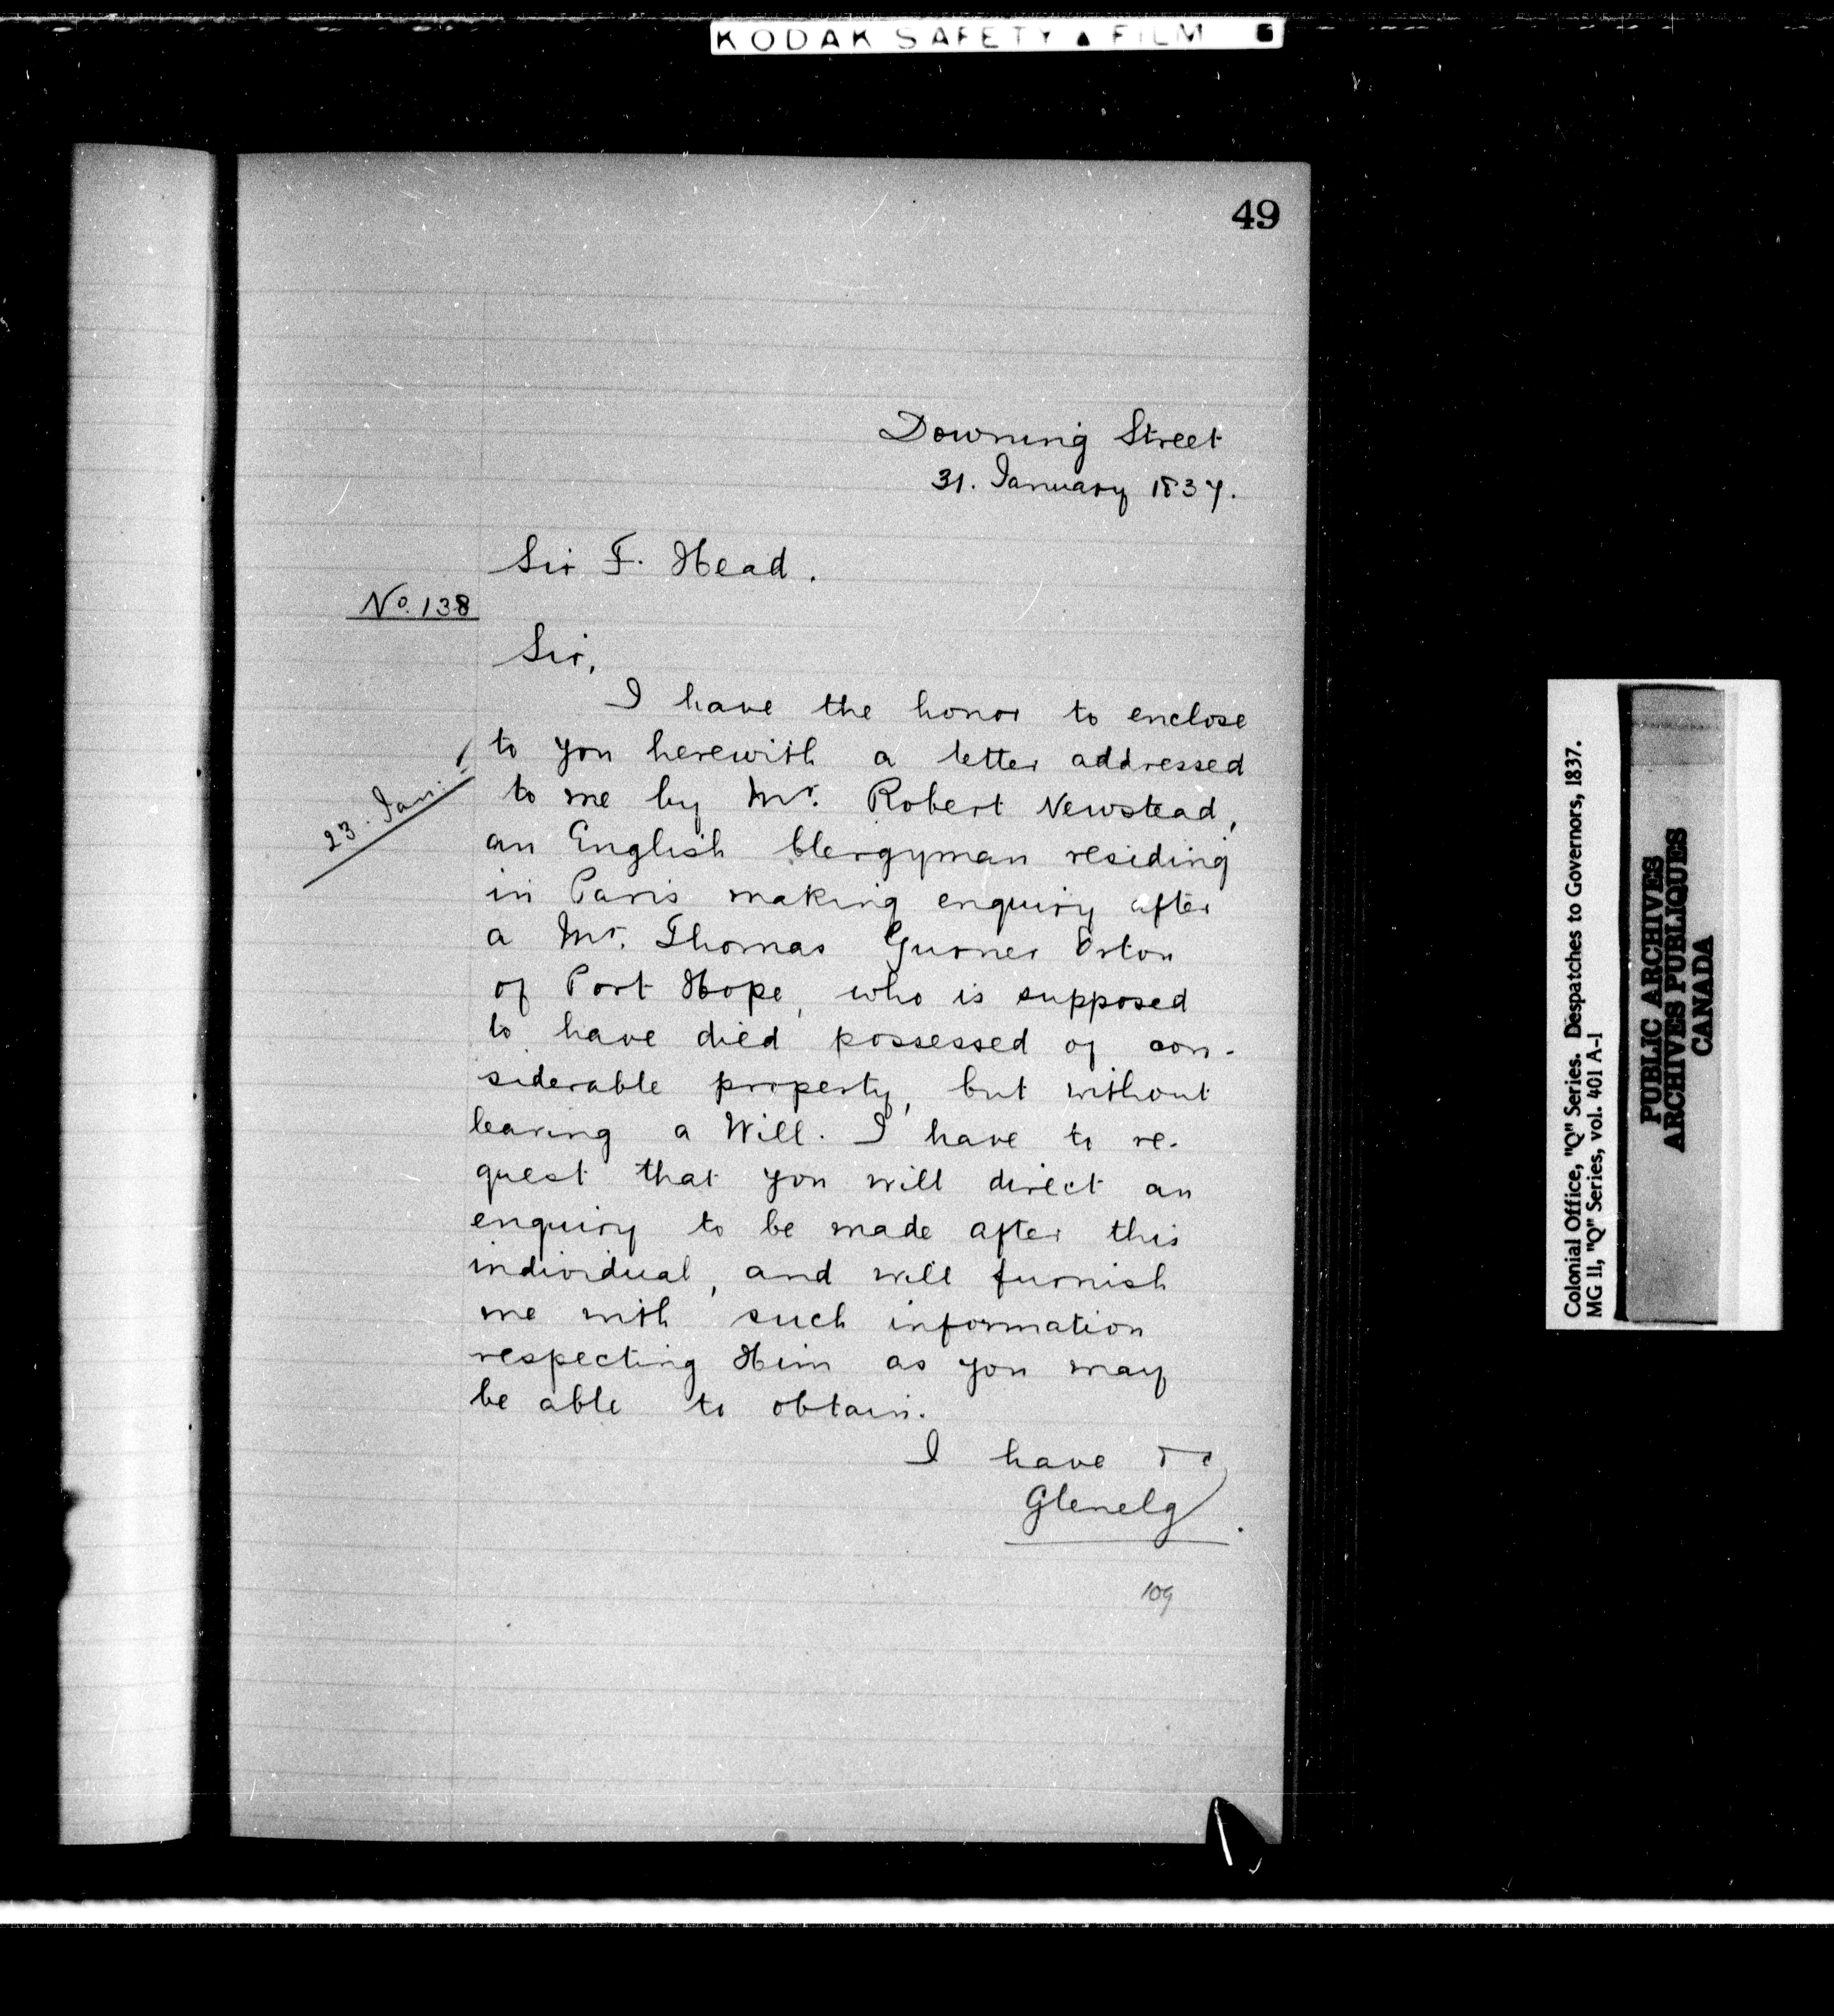 KODAK SAFETY ▲ FILM
49
Downing Street
31. January 1837.
Sir F. Head.
No. 138
Sir,
I have the honor to enclose
to you herewith a letter addressed
23. Jan.
to me by Mr. Robert Newstead,
an English Clergyman residing
in Paris making enquiry after
a Mr. Thomas Gurner Orton
of Port Hope, who is supposed
to have died possessed of con-
siderable property, but without
leaving a Will. I have to re-
quest that you will direct an
enquiry to be made after this
individual, and will furnish
me with such information
respecting Him as you may
be able to obtain.
I have &c
Glenelg.
109
Colonial Office, "Q" Series. Despatches to Governors, 1837.
MG 11, "Q" Series, vol. 401 A-1
PUBLIC ARCHIVES
ARCHIVES PUBLIQUES
CANADA